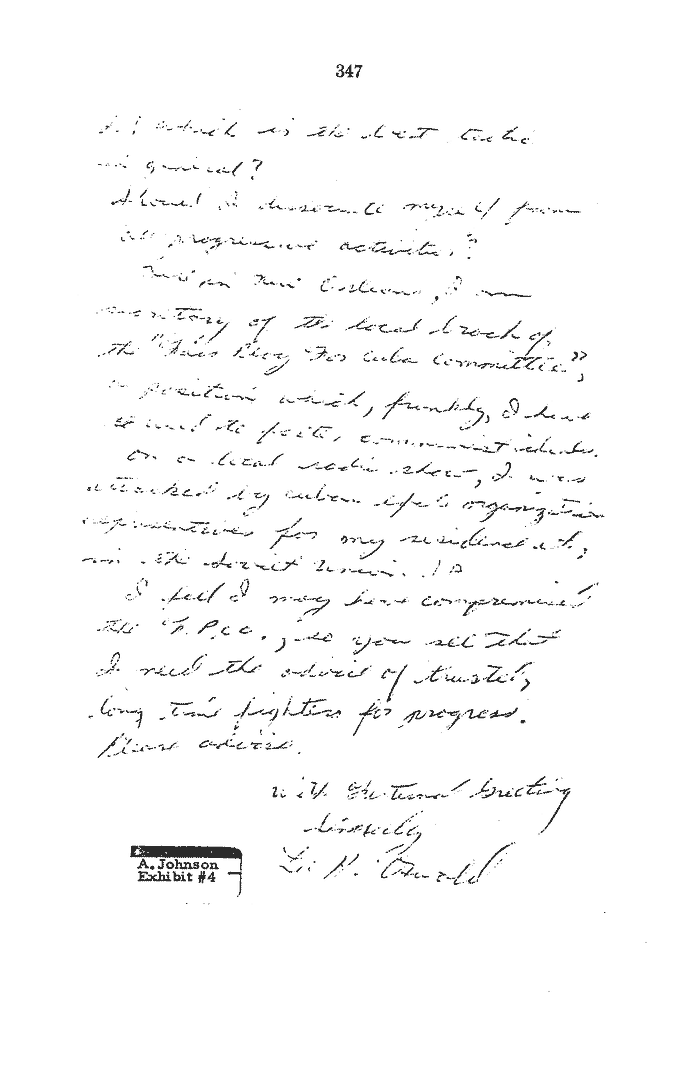 347
which is the best tactic
in general?
Should I dissociate myself from
all progressive activities?
Here in New Orleans, I am
secretary of the local branch of
the "Fair Play For Cuba Committee",
a position which, frankly, I have
used to foster communist ideals.
On a local radio show, I was
attacked by cuban exile organization
representatives for my residence etc,
in the Soviet Union.
I feel I may have compromised
the F.P.C.C., so you see that
I need the advice of trusted,
long time fighters for progress.
Please advise.
with Fraternal Greeting
Sincerely
Lee H. Oswald
A. Johnson
Exhibit #4